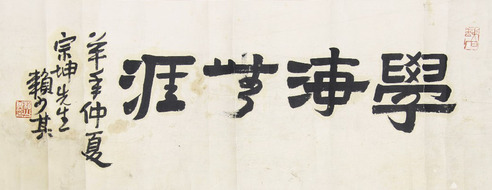 學海無涯
羊年仲夏
宗坤先生
賴少其